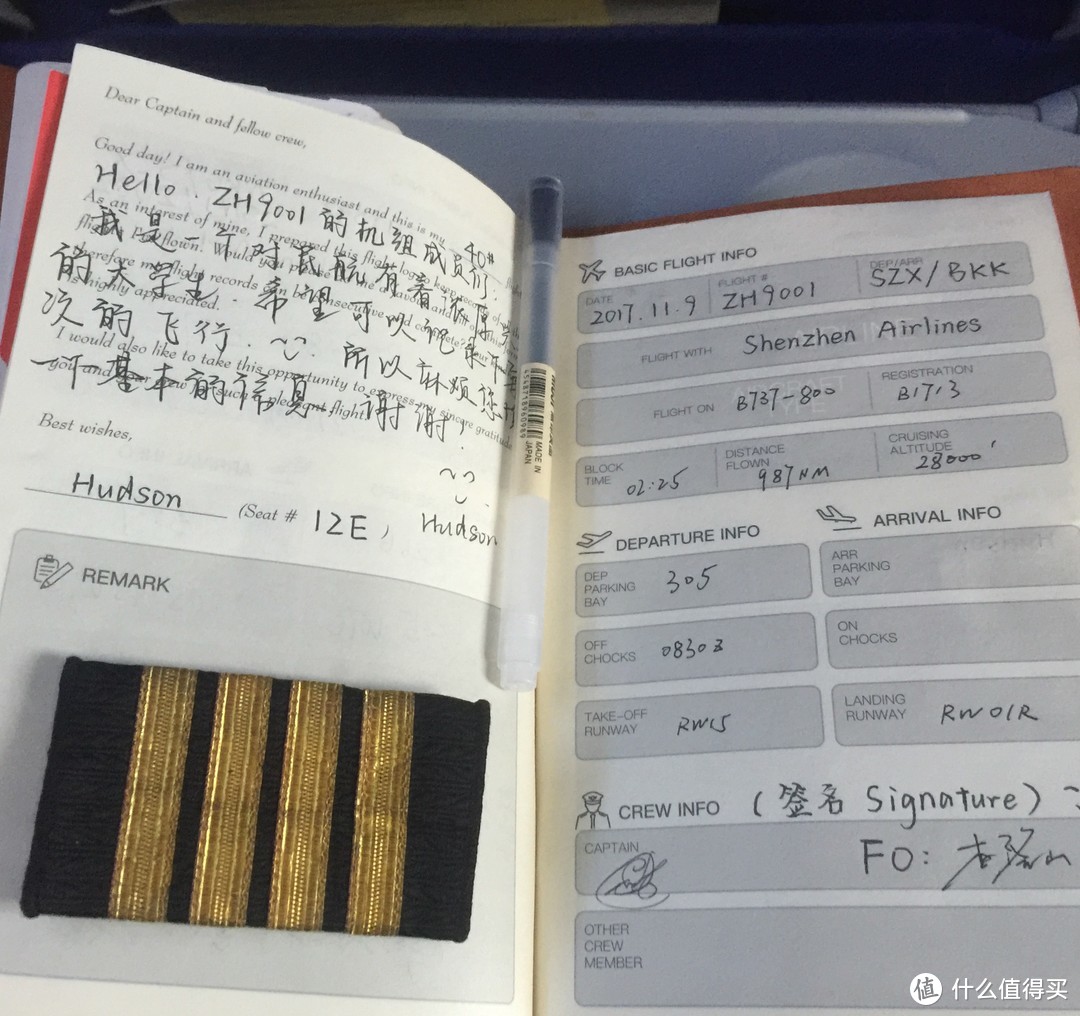 Dear Captain and fellow crew,
Good day! I am an aviation enthusiast and this is my 40th flight
Hello ZH9001 的机组成员们.
As an interest of mine, I prepared this flight log keep record of
我是一个对民航有着浓厚兴
flown. Would you
therefore my flight records can be consecutive and complete?
的大学生. 希望可以记录下每
is highly appreciated.
次的飞行. 所以麻烦您写
I would also like to take this opportunity to express my sincere gratitude
一下基本的信息. 谢谢!
you and such pleasant flight
Best wishes,
Hudson (Seat # 12E, Hudson
REMARK
MADE IN JAPAN
BASIC FLIGHT INFO
DATE 2017.11.9 FLIGHT # ZH9001 DEP/ARR SZX/BKK
FLIGHT WITH Shenzhen Airlines
FLIGHT ON B737-800 REGISTRATION B1713
BLOCK TIME 02:25 DISTANCE FLOWN 987NM CRUISING ALTITUDE 28000'
DEPARTURE INFO
ARRIVAL INFO
DEP PARKING BAY 305
ARR PARKING BAY
OFF CHOCKS 0830Z
ON CHOCKS
TAKE-OFF RUNWAY RW15
LANDING RUNWAY RW01R
CREW INFO (签名 Signature)
CAPTAIN FO:
OTHER CREW MEMBER
值 什么值得买